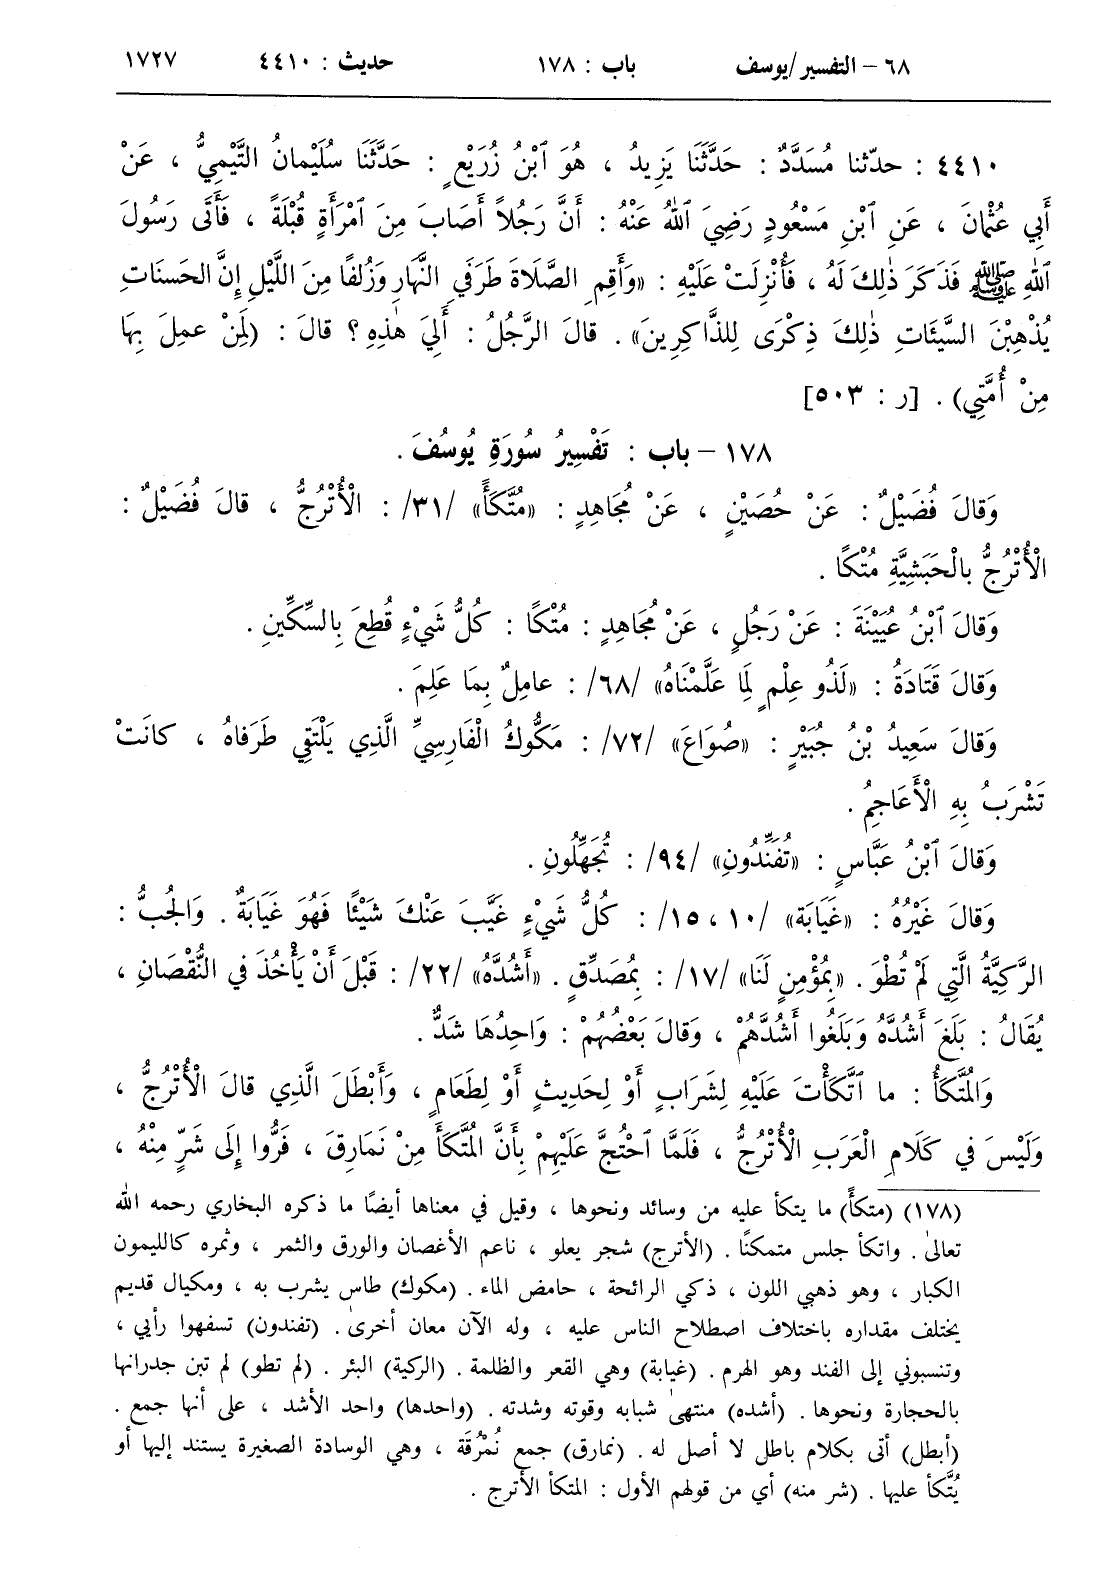 ٦٨ – التفسير/يوسف باب : ١٧٨ حديث : ٤٤١٠ ١٧٢٧
٤٤١٠ : حدّثنا مُسَدَّدٌ : حَدَّثَنَا يَزِيدُ ، هُوَ ٱبْنُ زُرَيْعٍ : حَدَّثَنَا سُلَيْمانُ التَّيْمِيُّ ، عَنْ
أَبِي عُثْمانَ ، عَنِ ٱبْنِ مَسْعُودٍ رَضِيَ ٱللهُ عَنْهُ : أَنَّ رَجُلاً أَصَابَ مِنَ ٱمْرَأَةٍ قُبْلَةً ، فَأَتَى رَسُولَ
ٱللهِ ﷺ فَذَكَرَ ذٰلِكَ لَهُ ، فَأُنْزِلَتْ عَلَيْهِ : «وَأَقِمِ الصَّلَاةَ طَرَفَيِ النَّهَارِ وَزُلَفًا مِنَ اللَّيْلِ إِنَّ الحَسَنَاتِ
يُذْهِبْنَ السَّيِّئَاتِ ذٰلِكَ ذِكْرَى لِلذَّاكِرِينَ» . قالَ الرَّجُلُ : أَلِيَ هٰذِهِ ؟ قالَ : (لِمَنْ عمِلَ بِهَا
مِنْ أُمَّتِي) . [ر : ٥٠٣]
١٧٨ – باب : تَفْسِيرُ سُورَةِ يُوسُفَ .
وَقالَ فُضَيْلٌ : عَنْ حُصَيْنٍ ، عَنْ مُجَاهِدٍ : «مُتَّكَأً» /٣١/ : الْأُتْرُجُّ ، قالَ فُضَيْلٌ :
الْأُتْرُجُّ بالْحَبَشِيَّةِ مُتْكًا .
وَقالَ ٱبْنُ عُيَيْنَةَ : عَنْ رَجُلٍ ، عَنْ مُجَاهِدٍ : مُتْكًا : كُلُّ شَيْءٍ قُطِعَ بِالسِّكِّينِ .
وَقالَ قَتَادَةُ : «لَذُو عِلْمٍ لِمَا عَلَّمْنَاهُ» /٦٨/ : عامِلٌ بِمَا عَلِمَ .
وَقالَ سَعِيدُ بْنُ جُبَيْرٍ : «صُوَاعَ» /٧٢/ : مَكُّوكُ الْفَارِسِيِّ الَّذِي يَلْتَقِي طَرَفاهُ ، كانَتْ
تَشْرَبُ بِهِ الْأَعَاجِمُ .
وَقالَ ٱبْنُ عَبَّاسٍ : «تُفَنِّدُونِ» /٩٤/ : تُجَهِّلُونِ .
وَقالَ غَيْرُهُ : «غَيَابَة» /١٠ ، ١٥/ : كُلُّ شَيْءٍ غَيَّبَ عَنْكَ شَيْئًا فَهُوَ غَيَابَةٌ . وَالجُبُّ :
الرَّكِيَّةُ الَّتِي لَمْ تُطْوَ . «بِمُؤْمِنٍ لَنَا» /١٧/ : بِمُصَدِّقٍ . «أَشُدَّهُ» /٢٢/ : قَبْلَ أَنْ يَأْخُذَ في النُّقْصَانِ ،
يُقَالُ : بَلَغَ أَشُدَّهُ وَبَلَغُوا أَشُدَّهُمْ ، وَقالَ بَعْضُهُمْ : وَاحِدُهَا شَدٌّ .
وَالمُتَّكَأُ : ما ٱتَّكَأْتَ عَلَيْهِ لِشَرَابٍ أَوْ لِحَدِيثٍ أَوْ لِطَعَامٍ ، وَأَبْطَلَ الَّذِي قالَ الْأُتْرُجُّ ،
وَلَيْسَ في كَلَامِ الْعَرَبِ الْأُتْرُجُّ ، فَلَمَّا ٱحْتُجَّ عَلَيْهِمْ بِأَنَّ المُتَّكَأَ مِنْ نَمَارِقَ ، فَرُّوا إِلَى شَرٍّ مِنْهُ ،
(١٧٨) (متكأً) ما يتكأ عليه من وسائد ونحوها ، وقيل في معناها أيضًا ما ذكره البخاري رحمه الله
تعالىٰ . واتكأ جلس متمكنًا . (الأترج) شجر يعلو ، ناعم الأغصان والورق والثمر ، وثمره كالليمون
الكبار ، وهو ذهبي اللون ، ذكي الرائحة ، حامض الماء . (مكوك) طاس يشرب به ، ومكيال قديم
يختلف مقداره باختلاف اصطلاح الناس عليه ، وله الآن معان أخرىٰ . (تفندون) تسفهوا رأيي ،
وتنسبوني إلى الفند وهو الهرم . (غيابة) وهي القعر والظلمة . (الركية) البئر . (لم تطو) لم تبن جدرانها
بالحجارة ونحوها . (أشده) منتهىٰ شبابه وقوته وشدته . (واحدها) واحد الأشد ، على أنها جمع .
(أبطل) أتى بكلام باطل لا أصل له . (نمارق) جمع نُمْرُقَة ، وهي الوسادة الصغيرة يستند إليها أو
يُتَّكأ عليها . (شر منه) أي من قولهم الأول : المتكأ الأترج .